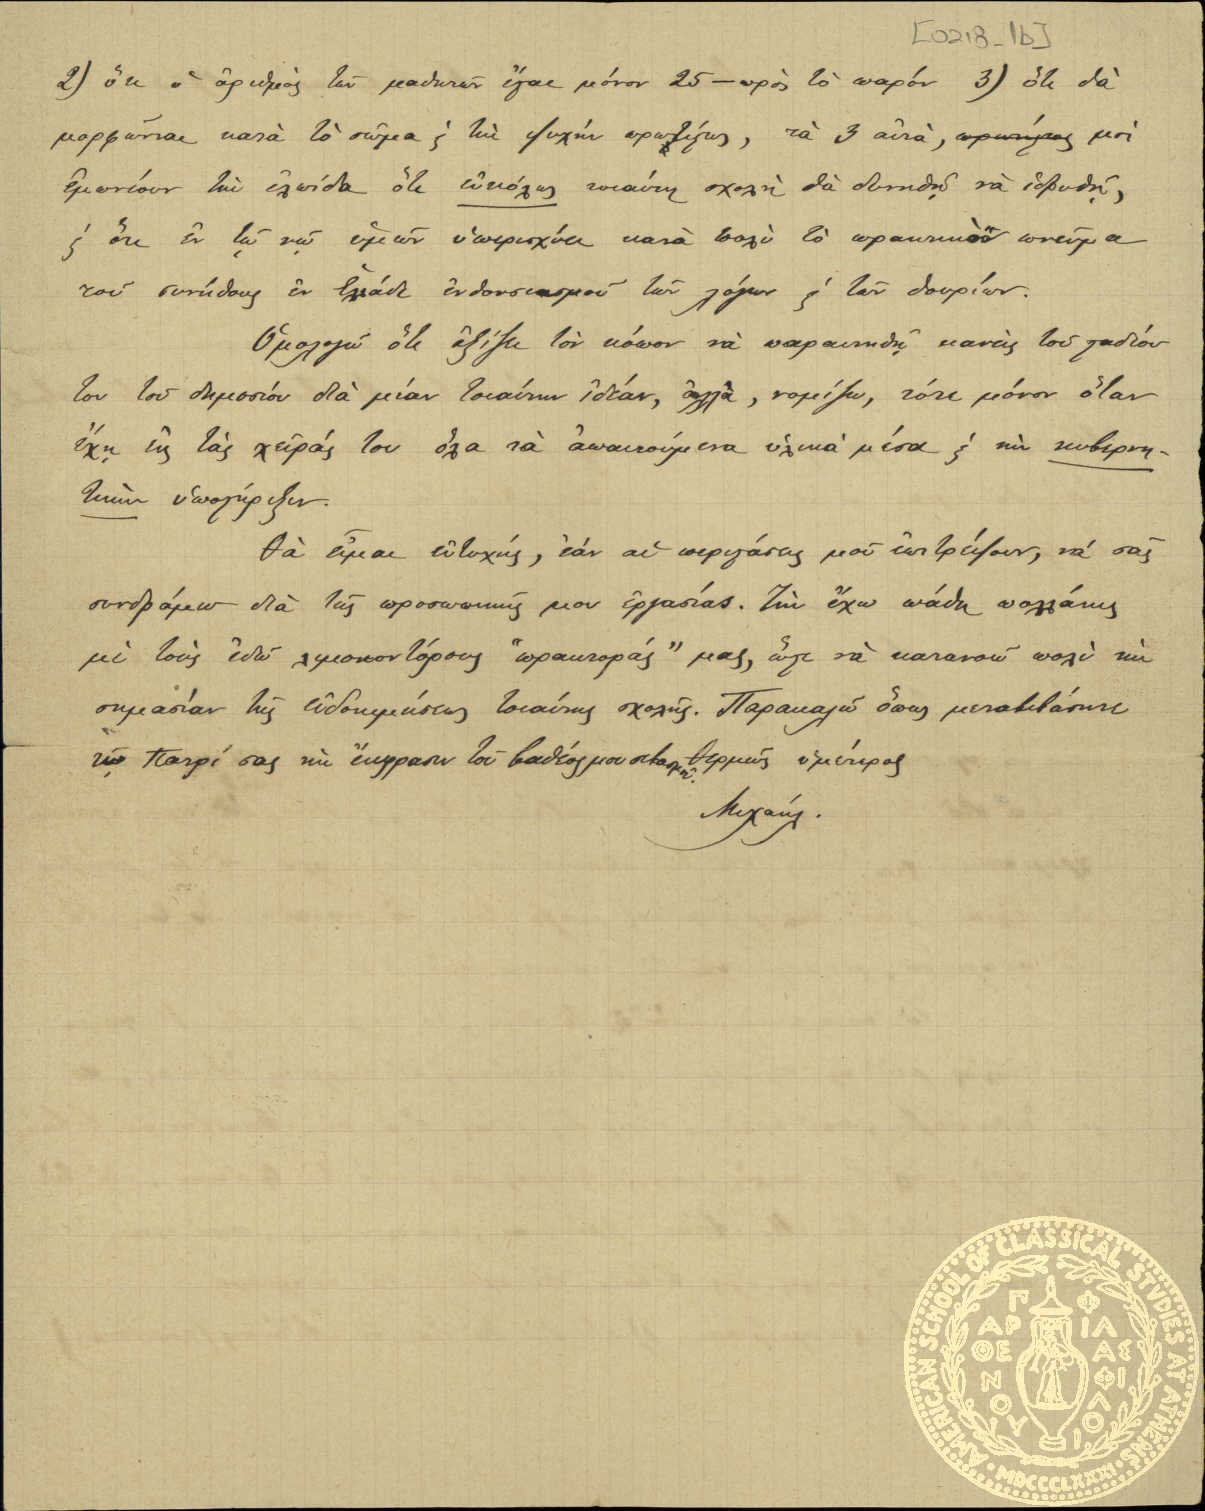 [0218_1b]
2) ὅτι ὁ ἀριθμὸς τῶν μαθητῶν εἶναι μόνον 25 — πρὸς τὸ παρόν 3) ὅτι θὰ
μορφῶνται κατὰ τὸ σῶμα ϗ τὴν ψυχήν πρωτίστως, τὰ 3 αὐτὰ, μοὶ
ἐμπνέουν τὴν ἐλπίδα ὅτι εὐκόλως τοιαύτη σχολὴ θὰ δυνηθῇ νὰ ἱδρυθῇ,
ϗ ὅτι ἐν τῷ νῷ ὑμῶν ὑπερισχύει κατὰ πολὺ τὸ πρακτικὸν πνεῦμα
τοῦ συνήθους ἐν Ἑλλάδι ἐνθουσιασμοῦ τῶν λόγων ϗ τῶν θουρίων.
Ὁμολογῶ ὅτι ἀξίζει τὸν κόπον νὰ παραιτηθῇ κανεὶς τοῦ σταδίου
του τοῦ δημοσίου διὰ μίαν τοιαύτην ἰδέαν, ἀλλὰ, νομίζω, τότε μόνον ὅταν
ἔχῃ εἰς τὰς χεῖράς του ὅλα τὰ ἀπαιτούμενα ὑλικὰ μέσα ϗ τὴν κυβερνη-
τικὴν ὑποστήριξιν.
Θὰ εἶμαι εὐτυχής, ἐάν αἱ περιστάσεις μοῦ ἐπιτρέψουν, νά σᾶς
συνδράμω διὰ τῆς προσωπικῆς μου ἐργασίας. Τὴν ἔχω πάθη πολλάκις
μὲ τοὺς ἐδῶ λιμοκοντόρους "πρακτοράς" μας, ὥστε νὰ κατανοῶ πολὺ τὴν
σημασίαν τῆς εὐδοκιμήσεως τοιαύτης σχολῆς. Παρακαλῶ ὅπως μεταβιβάσητε
τῷ Πατρί σας τὴν ἔκφρασιν τοῦ βαθέος μου σεβασμοῦ. Θερμῶς ὑμέτερος
Μιχαήλ.
AMERICAN SCHOOL OF CLASSICAL STVDIES AT ATHENS · MDCCCLXXXI ·
ΠΑΡΘΕΝΟΥ ΦΙΛΑΣ ΦΙΛΟΙ